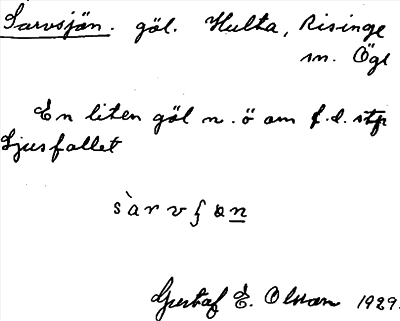 Sarvsjön. göl. Hulta, Risinge
sn. Ögl
En liten göl n.ö om f.d. stp
Ljusfallet
s`arvʃɵn
Gustaf E. Olsson 1929.